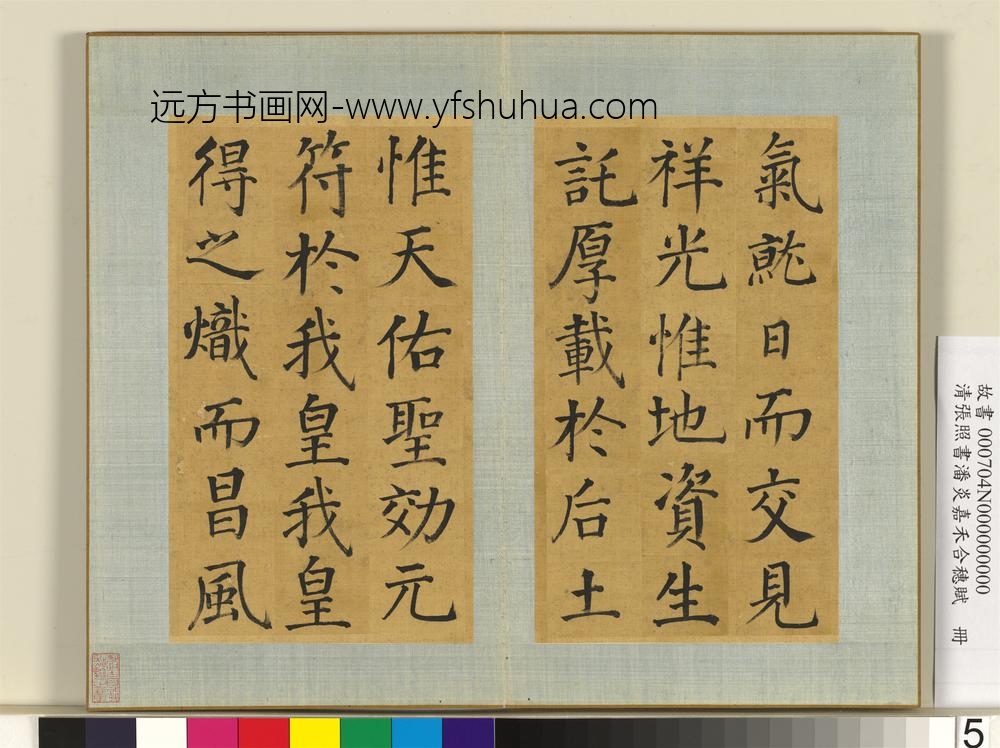 远方书画网-www.yfshuhua.com
氣就日而交見
祥光惟地資生
託厚載於后土
惟天佑聖効元
符於我皇我皇
得之熾而昌風
故書 000704N000000000
清張照書潘炎嘉禾合穗賦 冊
5